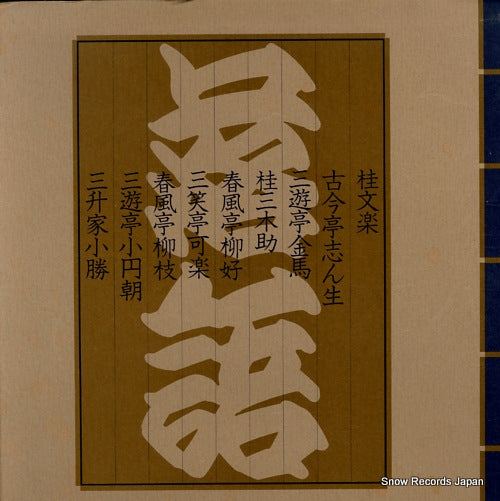 落語
桂文楽
古今亭志ん生
三遊亭金馬
桂三木助
春風亭柳好
三笑亭可楽
春風亭柳枝
三遊亭小円朝
三升家小勝
Snow Records Japan